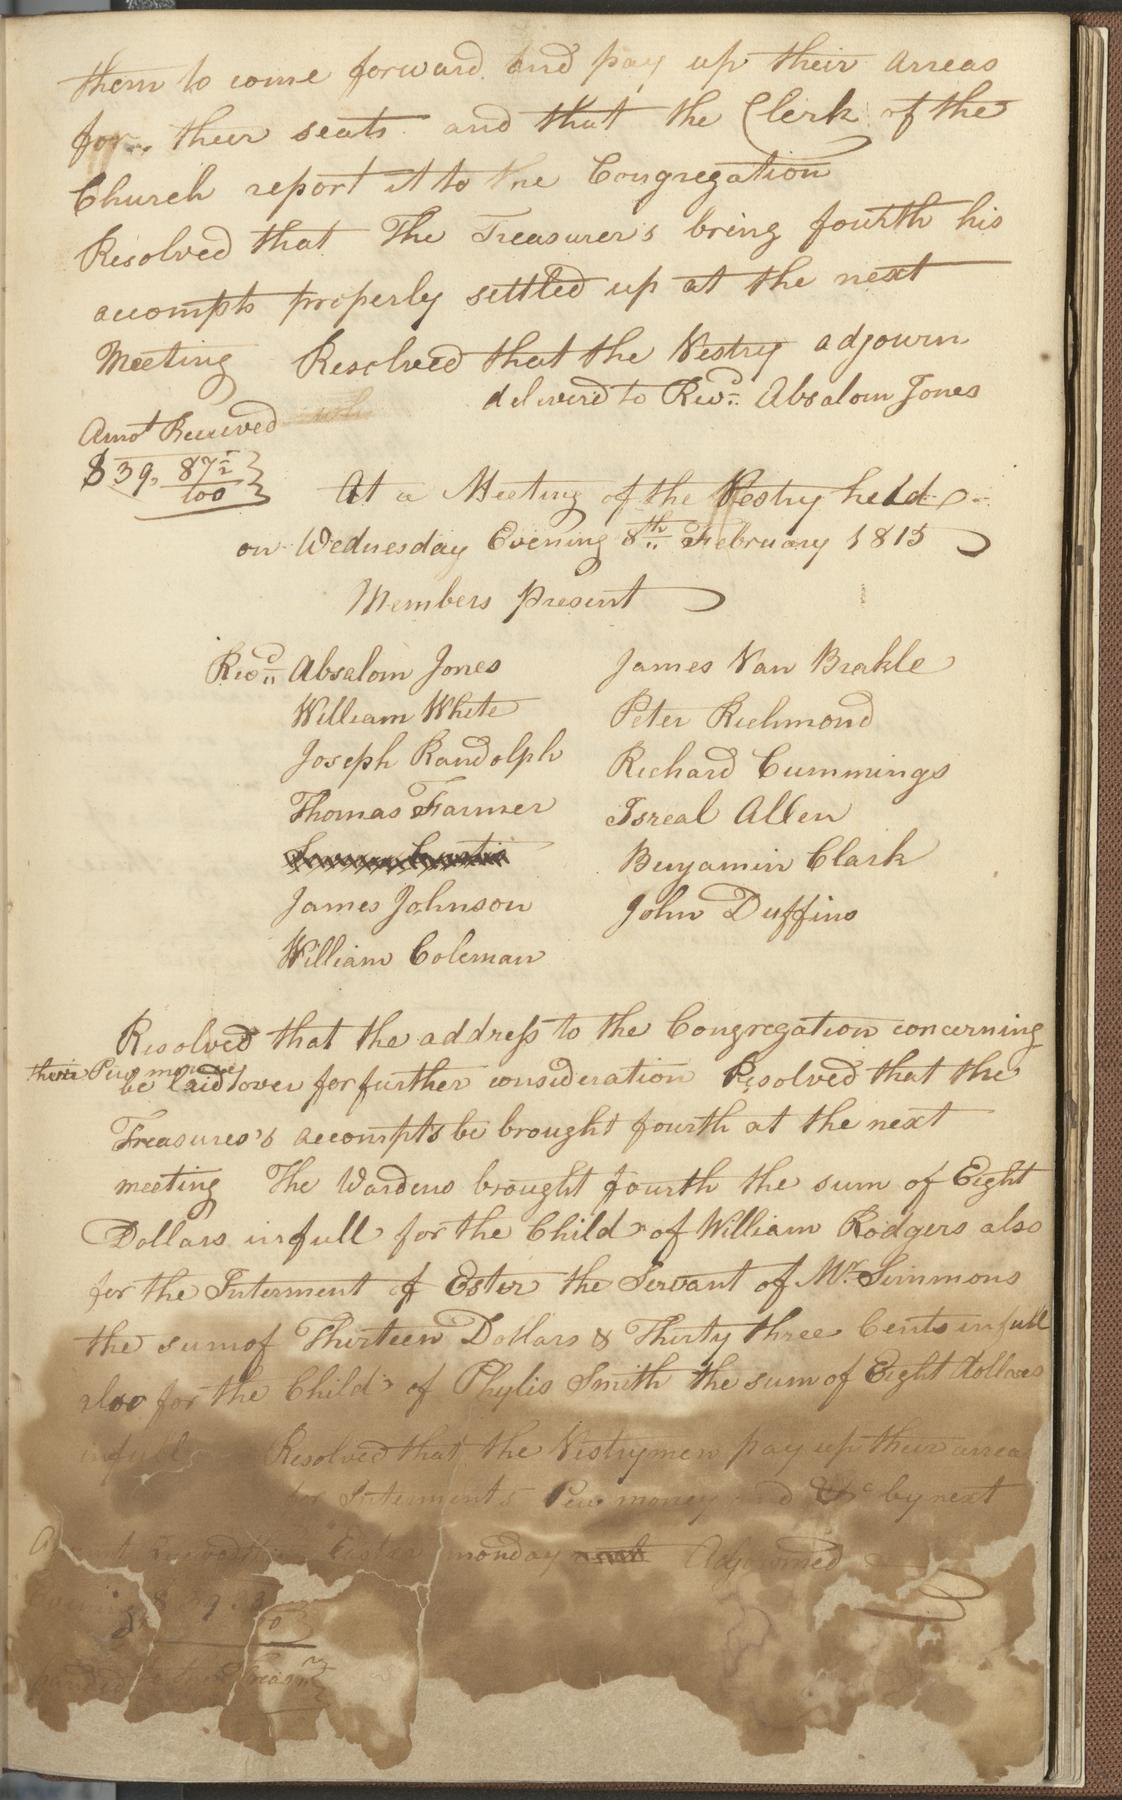 them to come forward and pay up their arreas
for their seats and that the Clerk of the
Church report it to the Congregation
Resolved that The Treasurer's bring fourth his
accompts properly settled up at the next
Meeting Resolved that the Vestry adjourn
deliverd to Revd. Absalom Jones
Amot Received
$39, 87½/100
At a Meeting of the Vestry held
on Wednesday Evening 8th February 1815
Members present
Revd. Absalom Jones
William White
Joseph Randolph
Thomas Farmer
James Johnson
William Coleman
James Van Brakle
Peter Richmond
Richard Cummings
Isreal Allen
Benjamin Clark
John Duffins
Resolved that the address to the Congregation concerning
their Pew money
be laid over for further consideration Resolved that the
Treasures's accompts be brought fourth at the next
meeting The Wardens brought fourth the sum of Eight
Dollars in full for the Child of William Rodgers also
for the Interment of Ester the Servant of Mr. Simmons
the sum of Thirteen Dollars & Thirty three Cents in full
also for the Child of Phylis Smith the sum of Eight dollars
in full Resolved that the Vestrymen pay up their area
for Interments Pew money and &c by next
Easter monday Adjourned
Evening
handed to the Treasr